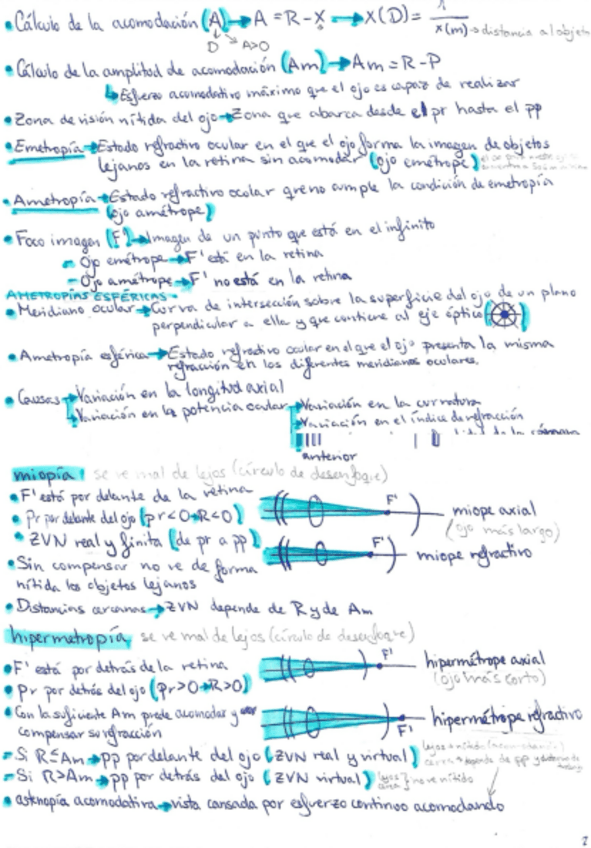 • Cálculo de la acomodación (A)→A = R-X →X(D) = 1/x(m)→distancia al objeto
D A>0
• Cálculo de la amplitud de acomodación (Am)→Am = R-P
↳Esfuerzo acomodativo máximo que el ojo es capaz de realizar
• Zona de visión nítida del ojo→Zona que abarca desde el pr hasta el pp
• Emetropía→Estado refractivo ocular en el que el ojo forma la imagen de objetos
lejanos en la retina sin acomodar (ojo emétrope)
• Ametropía→Estado refractivo ocular que no cumple la condición de emetropía
(ojo amétrope)
• Foco imagen (F')→Imagen de un punto que está en el infinito
- Ojo emétrope→F' está en la retina
- Ojo amétrope→F' no está en la retina
AMETROPÍAS ESFÉRICAS
• Meridiano ocular→Curva de intersección sobre la superficie del ojo de un plano
perpendicular a ella y que contiene al eje óptico
• Ametropía esférica→Estado refractivo ocular en el que el ojo presenta la misma
refracción en los diferentes meridianos oculares.
• Causas→Variación en la longitud axial
↳Variación en la potencia ocular→Variación en la curvatura
↳Variación en el índice de refracción
de la cámara
anterior
miopía se ve mal de lejos (círculo de desenfoque)
• F' está por delante de la retina
F'
• Pr por delante del ojo (pr<0→R<0)
miope axial
(ojo más largo)
• ZVN real y finita (de pr a pp)
F'
miope refractivo
• Sin compensar no ve de forma
nítida los objetos lejanos
• Distancias cercanas→ZVN depende de R y de Am
hipermetropía se ve mal de lejos (círculo de desenfoque)
• F' está por detrás de la retina
F'
hipermétrope axial
(ojo más corto)
• Pr por detrás del ojo (pr>0→R>0)
• Con la suficiente Am puede acomodar y
compensar su refracción
F'
hipermétrope refractivo
- Si R≤Am→pp por delante del ojo (ZVN real y virtual)
- Si R>Am→pp por detrás del ojo (ZVN virtual) no ve nítido
• astenopía acomodativa→vista cansada por esfuerzo continuo acomodando